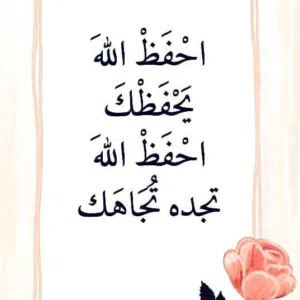 احْفَظْ اللهَ
يَحْفَظْكَ
احْفَظْ اللهَ
تجده تُجَاهَك